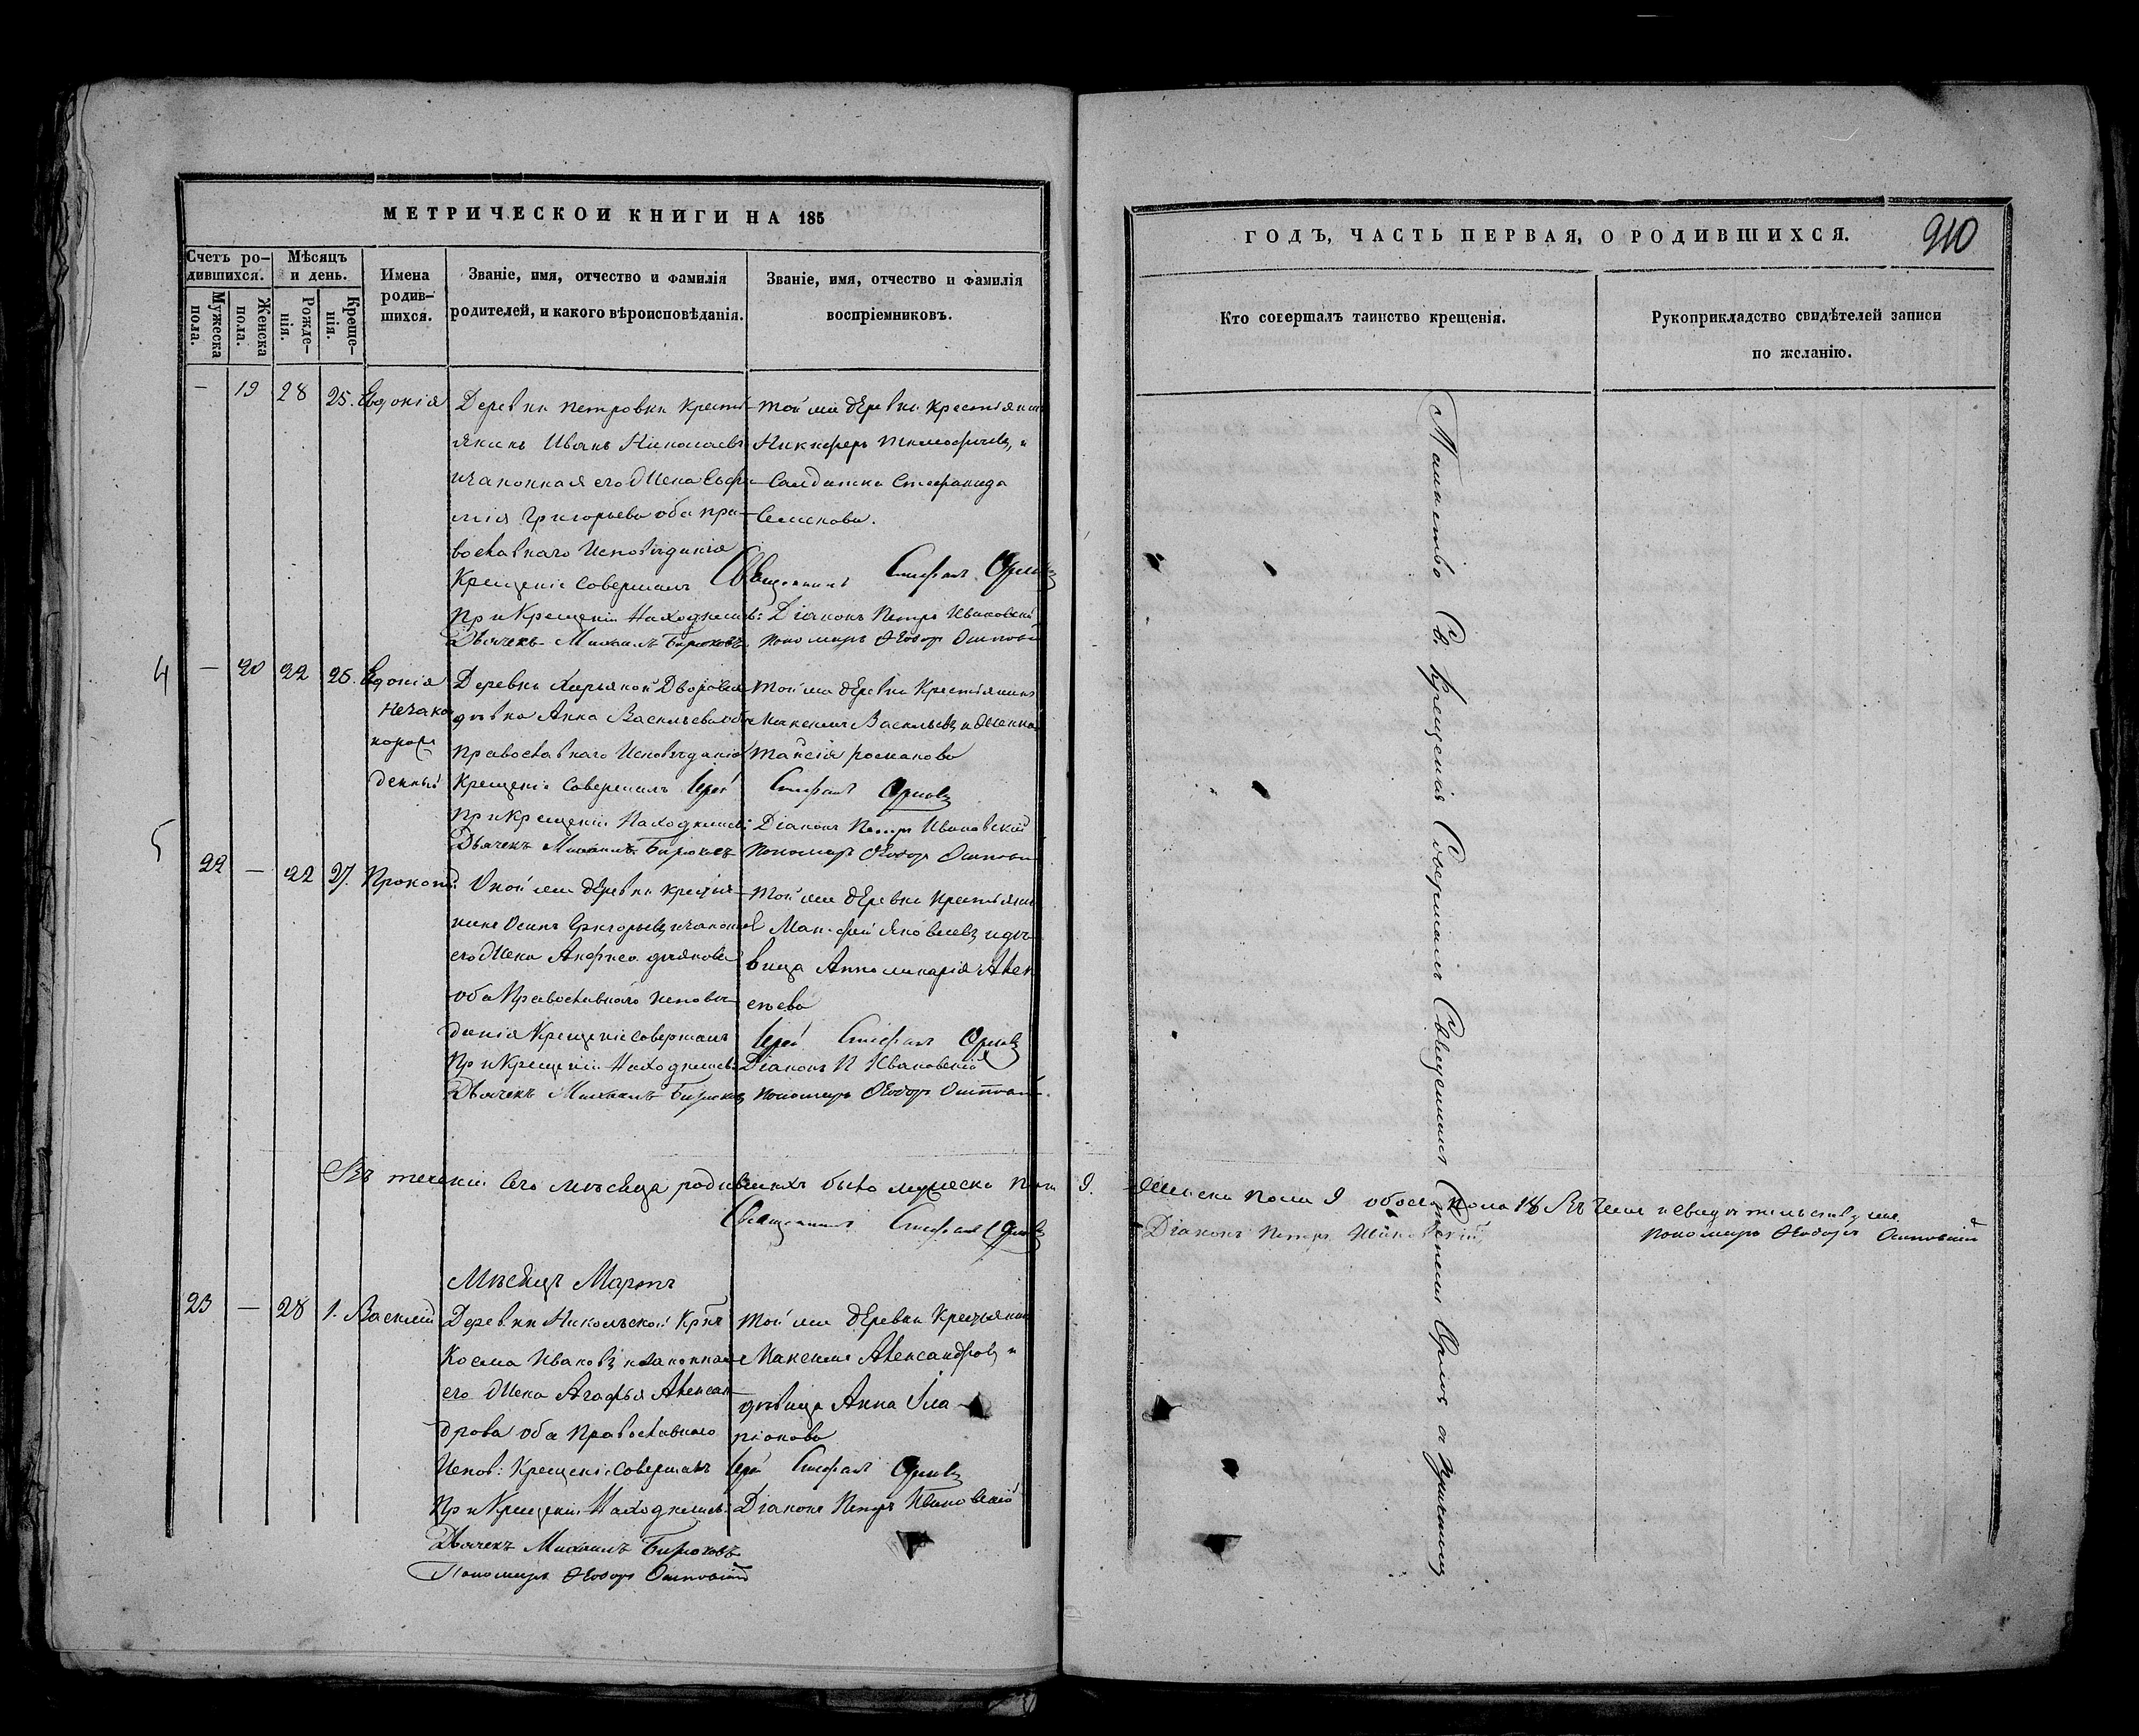 МЕТРИЧЕСКОЙ КНИГИ НА 185
Счетъ ро-
дившихся.
Мѣсяцъ
и день.
Имена
родив-
шихся.
Званіе, имя, отчество и фамилія
родителей, и какого вѣроисповѣданія.
Званіе, имя, отчество и фамилія
воспріемниковъ.
Мужеска
пола.
Женска
пола.
Рожде-
нія.
Креще-
нія.
— 19 28 25. Евдокія
Деревни Петровки Кресть
янинъ Иванъ Николаевъ
и законная его Жена Евфи
мія Григорьева оба пра-
вославнаго Исповѣданія
Крещеніе совершалъ Священникъ Стефанъ Орловъ
При Крещеніи Находились: Діаконъ Петръ Ивановскій
Дьячекъ Михаилъ Бирюковъ Пономарь Ѳеодоръ
той же деревни крестьянинъ
Никифоръ Тимофеевъ, и
Салдатка Стефанида
Семенова.
4 — 20 22 25. Евдокія
незако
норож
денный
Деревни Дворовая
девка Анна Васильева
православнаго Исповѣданія
Крещеніе Совершилъ Іерей Стефанъ Орловъ
При Крещеніи Находились: Діаконъ Петръ Ивановскій
Дьячекъ Михаилъ Бирюковъ Пономарь Ѳеодоръ
Той же деревни Крестьянинъ
Максимъ Васильевъ и
Таисія Романова
5
22 — 22 27. Прокопій
той же деревни
Осипъ Григорьевъ и законная
его Жена Анфиса
оба Православнаго исповѣ
данія Крещеніе совершалъ Іерей Стефанъ Орловъ
При Крещеніи Находились: Діаконъ П Ивановскій
Дьячекъ Михаилъ Бирюковъ Пономарь Ѳеодоръ
той же деревни Крестьянин
Яковлевъ и дѣ
вица Аполинарія Алек
сѣева
Въ теченіи сего мѣсяца родившихъ было мужеска пола 9.
Священникъ Стефанъ Орловъ
Мѣсяцъ Мартъ
23 — 28 1. Василій
Деревни Никольской
Косма Ивановъ и законная
его Жена Агафья Алексан
дрова оба Православнаго
Испов: Крещеніе Совершалъ Іерей Стефанъ Орловъ
При Крещеніи Находились: Діаконъ Петръ Ивановскій
Дьячекъ Михаилъ Бирюковъ
Пономарь Ѳеодоръ
той же деревни Крестьянин
Максимъ Александровъ и
дѣвица Анна Ила
ріонова
ГОДЪ, ЧАСТЬ ПЕРВАЯ, О РОДИВШИХСЯ.
210
Кто совершалъ таинство крещенія.
Рукоприкладство свидѣтелей записи
по желанію.
Таинство Св. Крещенія Совершалъ Священникъ Стефанъ Орловъ съ причтомъ
женска пола 9 обоего пола 18 Въ чемъ и свидѣтельствуемъ
Діаконъ Петръ Ивановскій
Пономарь Ѳеодоръ